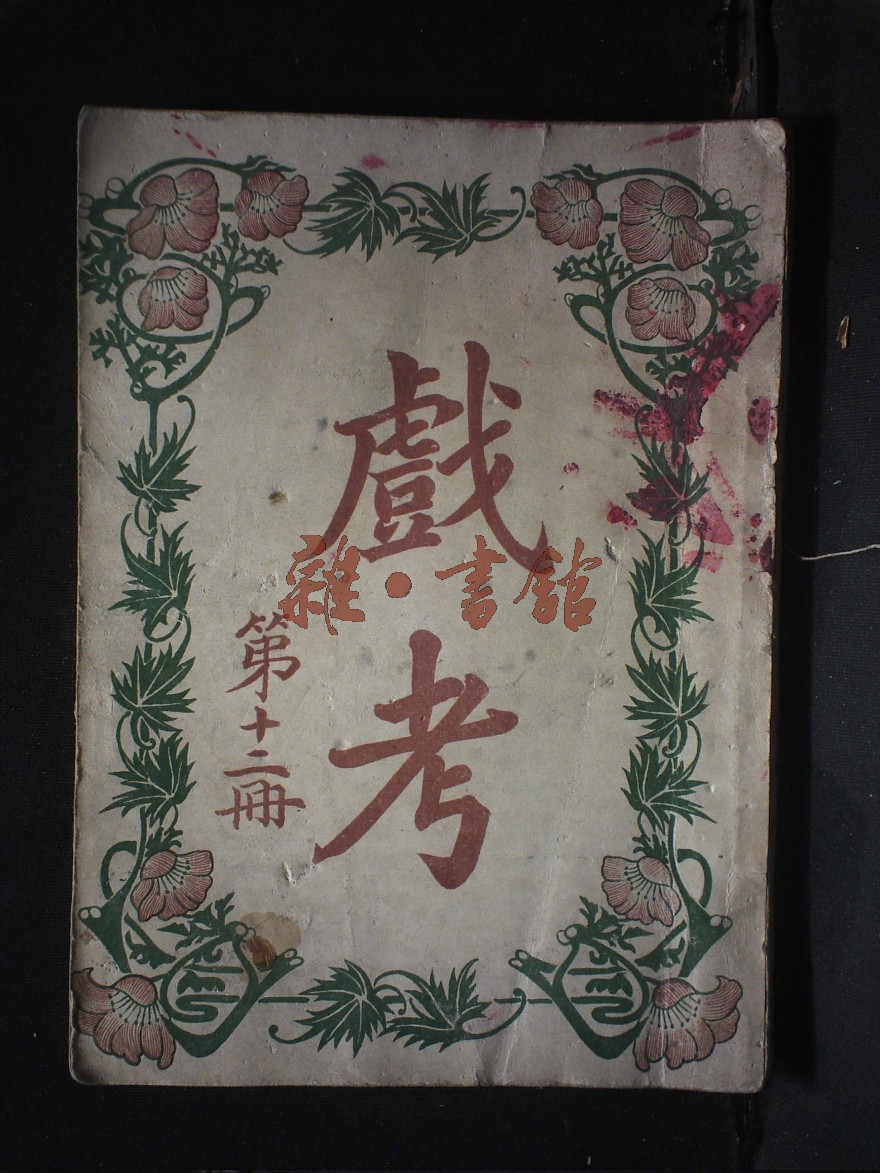 戲考
第十二冊
雜·書館